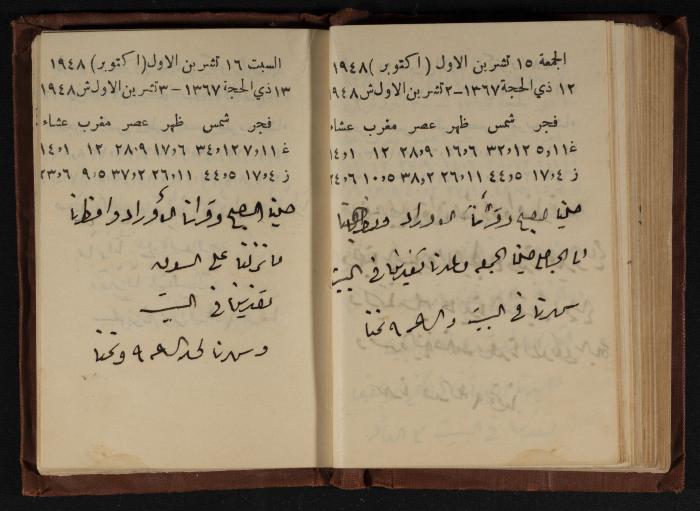 الجمعة ١٥ تشرين الاول (اكتوبر) ١٩٤٨
١٢ ذي الحجة ١٣٦٧-٢ تشرين الاول ش ١٩٤٨
فجر شمس ظهر عصر مغرب عشاء
غ ١١٫٥ ١٢٫٣٢ ١٦٫٦ ٢٨٫٩ ١٢ ١٫١٤
ز ٤٫١٧ ٥٫٤٤ ١١٫٢٦ ٢٫٣٨ ٥٫١٠ ٦٫٢٤
صلينا الصبح وقرأنا الاوراد وفطرنا
صلينا الجمعه وعدنا تغدينا في البيت
سهرنا في البيت والساعه ٩ نمنا
السبت ١٦ تشرين الاول (اكتوبر) ١٩٤٨
١٣ ذي الحجة ١٣٦٧-٣ تشرين الاول ش ١٩٤٨
فجر شمس ظهر عصر مغرب عشاء
غ ١١٫٧ ١٢٫٣٤ ١٧٫٦ ٢٨٫٩ ١٢ ١٫١٤
ز ٤٫١٧ ٥٫٤٤ ١١٫٢٦ ٢٫٣٧ ٥٫٩ ٦٫٢٣
صلينا الصبح وقرأنا الأوراد وافطرنا
ما نزلنا على السوق
تغدينا في البيت
وسهرنا لحد الساعه ٩ ونمنا